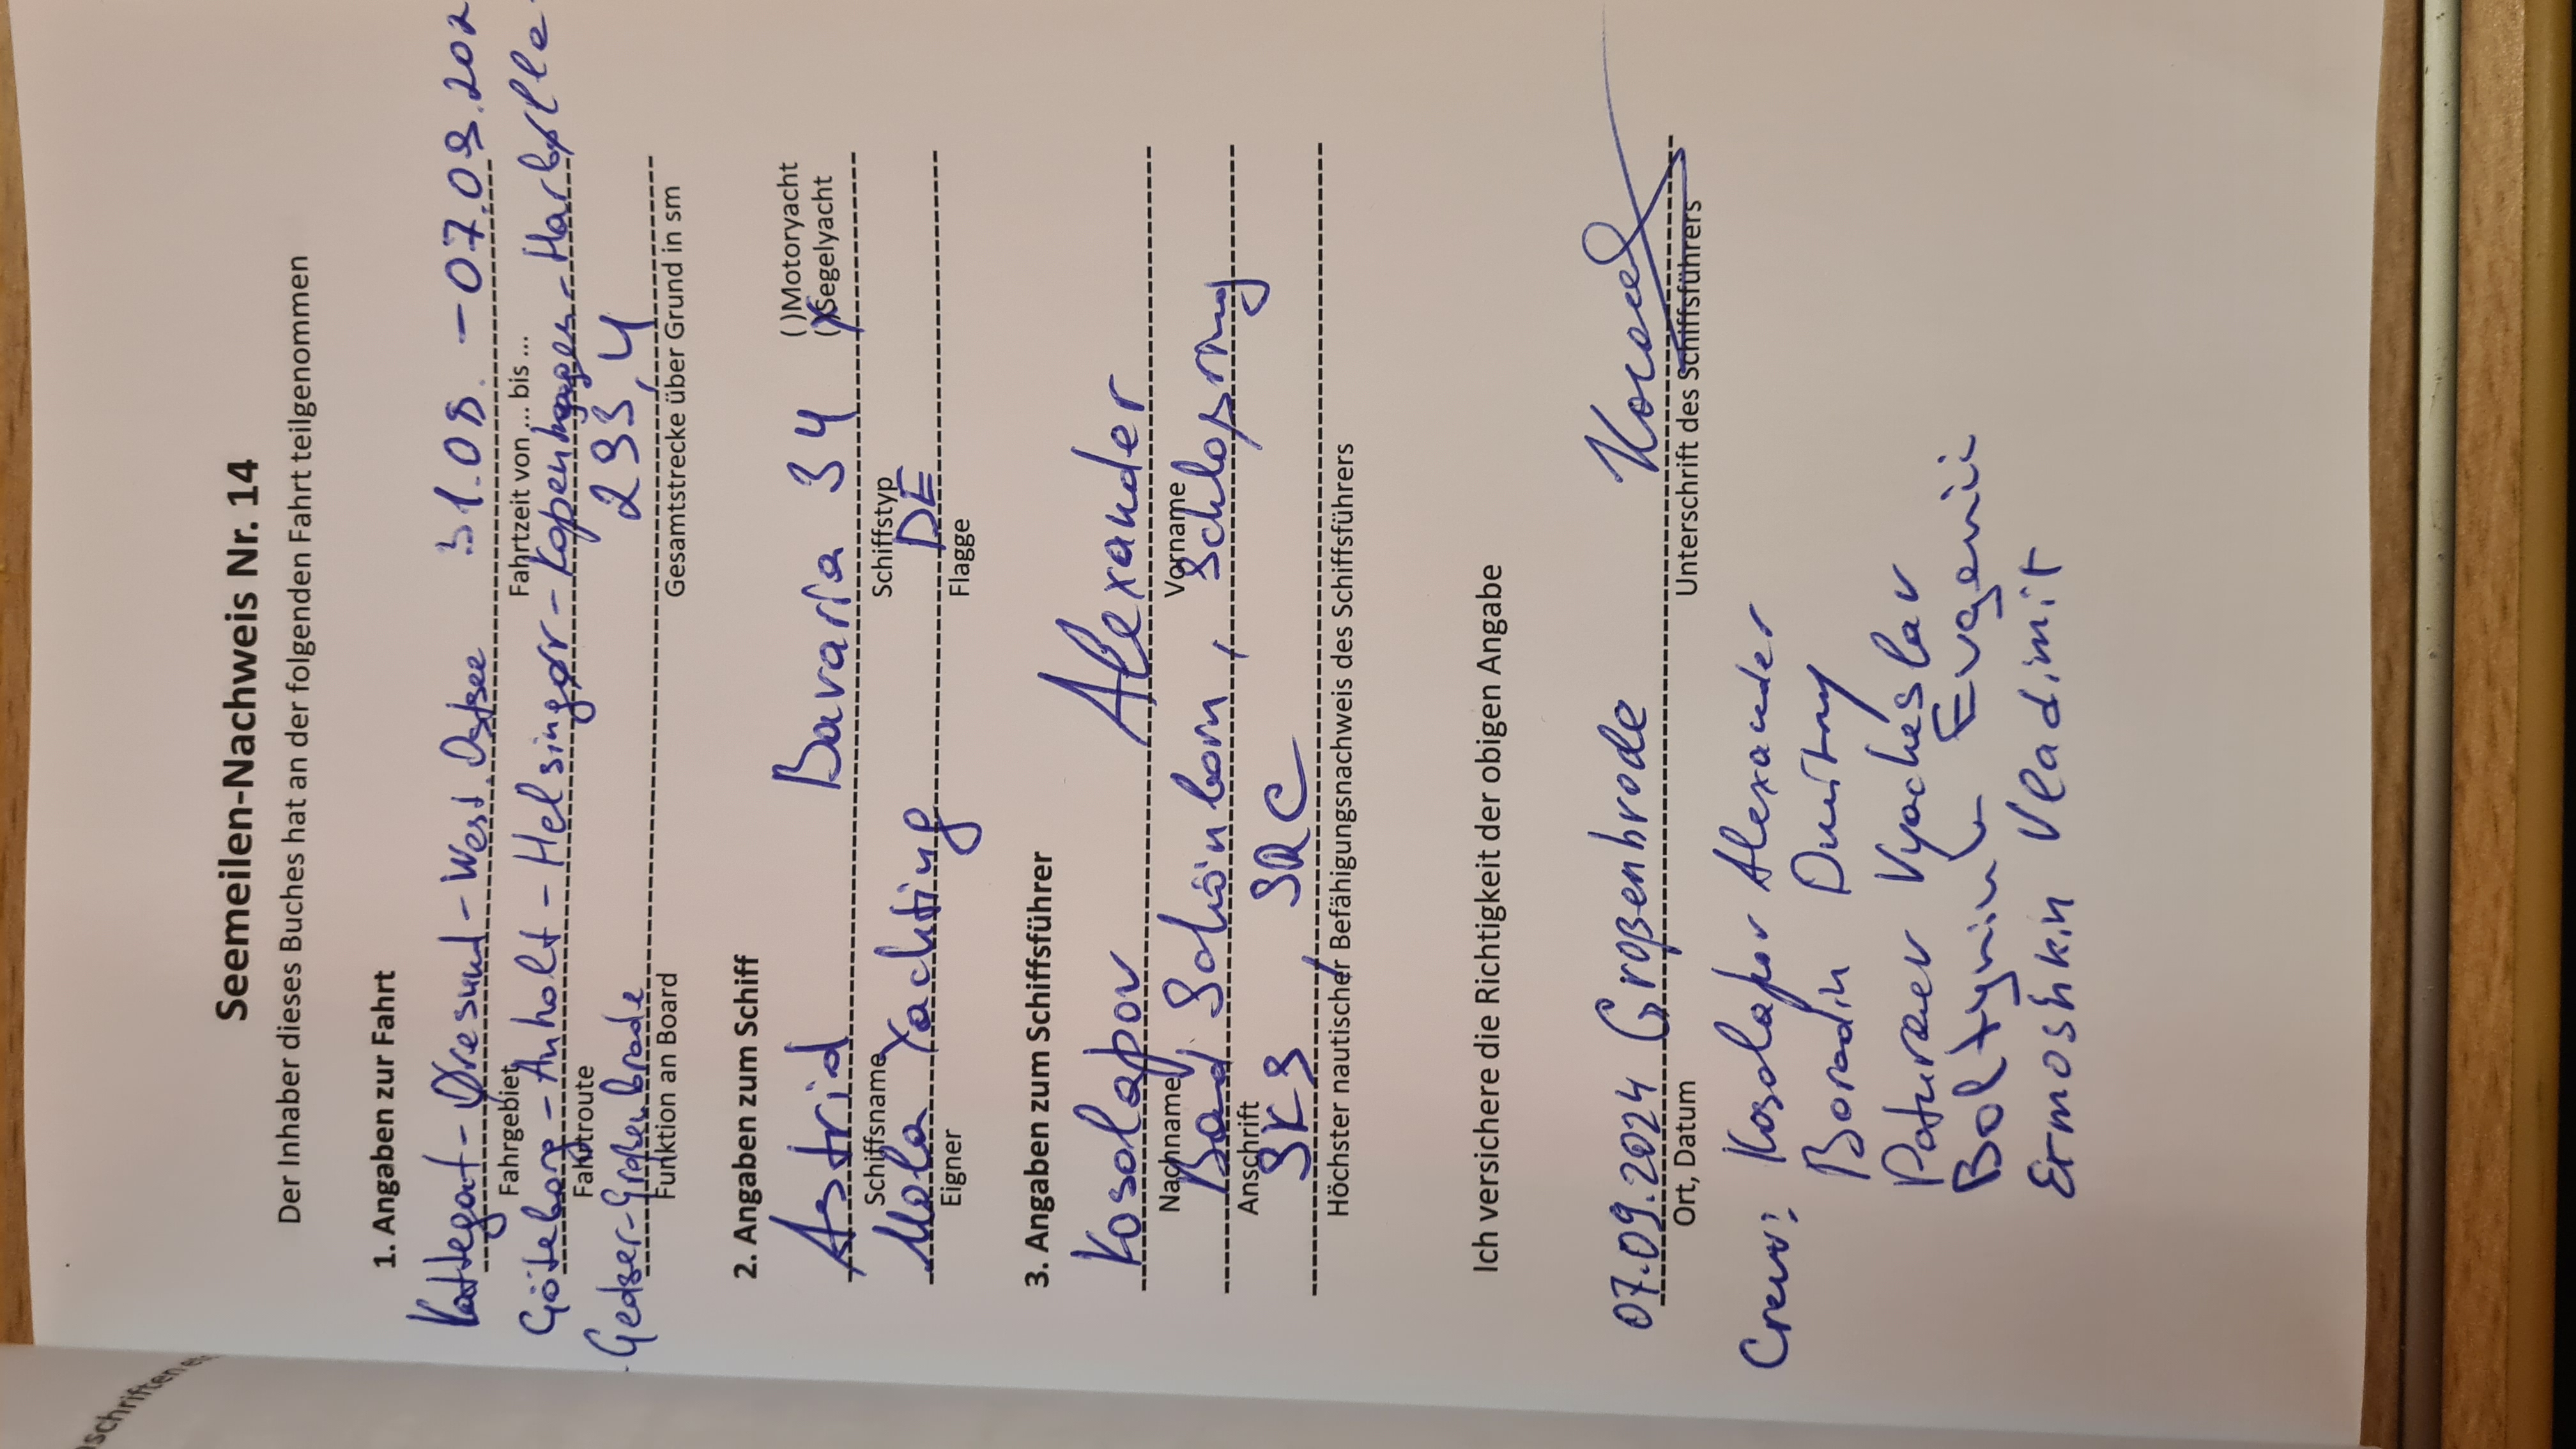 nschriften e
Seemeilen-Nachweis Nr. 14
Der Inhaber dieses Buches hat an der folgenden Fahrt teilgenommen
1. Angaben zur Fahrt
Kattegat - Øresund - West. Ostsee 31.08. - 07.09.202
Fahrgebiet Fahrtzeit von ... bis ...
Göteborg - Anholt - Helsingør - Kopenhagen -
Fahrtroute 293,4
- Gedser - Großenbrode
Funktion an Board Gesamtstrecke über Grund in sm
2. Angaben zum Schiff
( )Motoryacht
Astrid Bavaria 34 (x)Segelyacht
Schiffsname Schiffstyp
Mola Yachting DE
Eigner Flagge
3. Angaben zum Schiffsführer
Kosolapov Alexander
Nachname Vorname
Bad Schönborn,
Anschrift
SKS, SRC
Höchster nautischer Befähigungsnachweis des Schiffsführers
Ich versichere die Richtigkeit der obigen Angabe
07.09.2024 Großenbrode
Ort, Datum Unterschrift des Schiffsführers
Crew: Kosolapov Alexander
Borodin Dmitry
Vyacheslav
Evgenii
Ermoshkin Vladimir